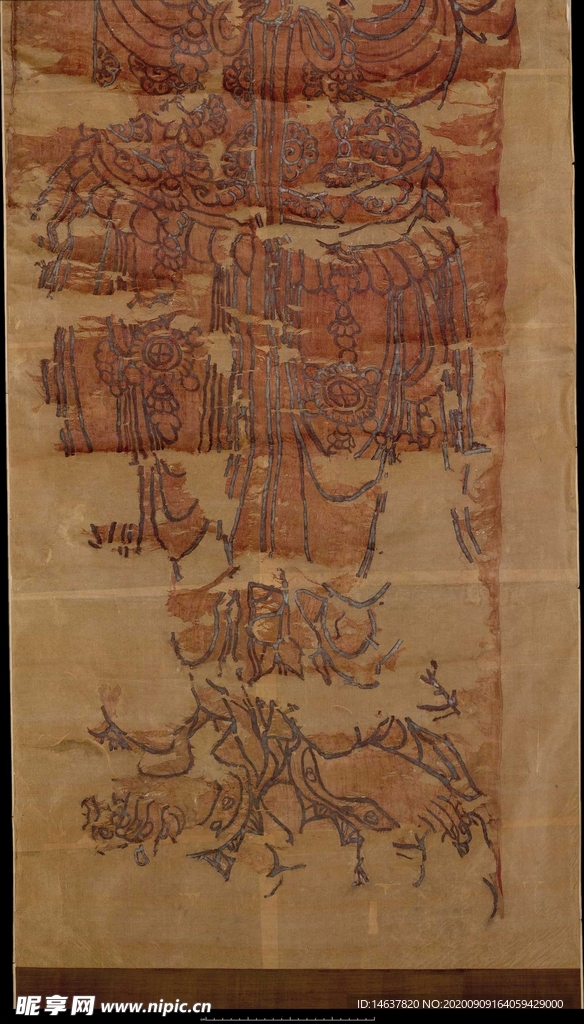 昵享网 www.nipic.cn
ID:14637820 NO:20200909164059429000